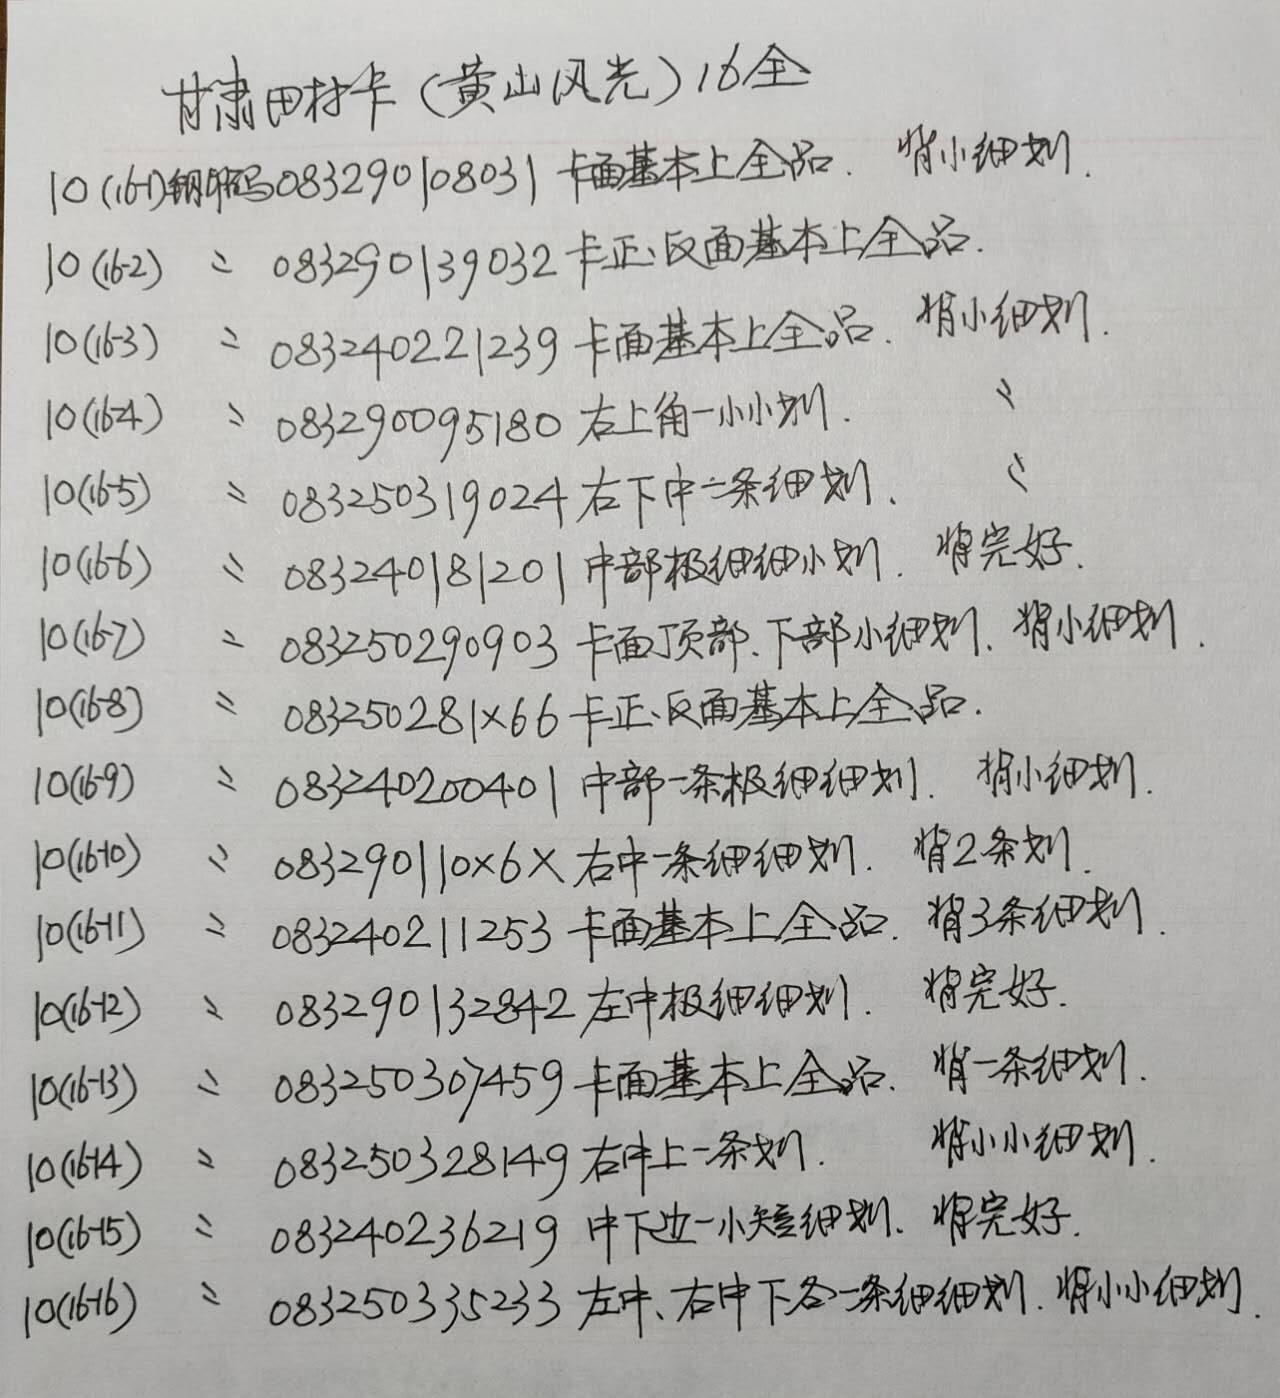 甘肃田村卡(黄山风光)16全
10(16-1)钢印码083290108031 卡面基本上全品. 背小细划.
10(16-2) 〃 083290139032 卡正、反面基本上全品.
10(16-3) 〃 083240221239 卡面基本上全品. 背小细划.
10(16-4) 〃 083290095180 右上角一小小划. 〃
10(16-5) 〃 083250319024 右下中二条细划. 〃
10(16-6) 〃 083240181201 中部极细细小划. 背完好.
10(16-7) 〃 083250290903 卡面顶部、下部小细划. 背小细划.
10(16-8) 〃 083250281×66 卡正、反面基本上全品.
10(16-9) 〃 083240200401 中部一条极细细划. 背小细划.
10(16-10) 〃 083290110×6× 右中一条细细划. 背2条划.
10(16-11) 〃 083240211253 卡面基本上全品. 背3条细划.
10(16-12) 〃 083290132842 左中极细细划. 背完好.
10(16-13) 〃 083250307459 卡面基本上全品. 背一条细划.
10(16-14) 〃 083250328149 右中上一条划. 背小小细划.
10(16-15) 〃 083240236219 中下边一小短细划. 背完好.
10(16-16) 〃 083250335233 左中、右中下各一条细细划. 背小小细划.